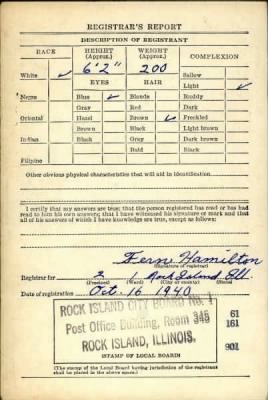 REGISTRAR'S REPORT
DESCRIPTION OF REGISTRANT
RACE HEIGHT (Approx.) WEIGHT (Approx.) COMPLEXION
White ✓ 6' 2" 200 Sallow
EYES HAIR Light ✓
Negro Blue ✓ Blonde Ruddy
Gray Red Dark
Oriental Hazel Brown ✓ Freckled
Brown Black Light brown
Indian Black Gray Dark brown
Bald Black
Filipino
Other obvious physical characteristics that will aid in identification
I certify that my answers are true; that the person registered has read or has had
read to him his own answers; that I have witnessed his signature or mark and that
all of his answers of which I have knowledge are true, except as follows:
Fern Hamilton
(Signature of registrar)
Registrar for 3 1 Rock Island Ill.
(Precinct) (Ward) (City or county) (State)
Date of registration Oct. 16 1940
ROCK ISLAND CITY BOARD No. 1
Post Office Building, Room 345
ROCK ISLAND, ILLINOIS.
61
161
901
(STAMP OF LOCAL BOARD)
(The stamp of the Local Board having jurisdiction of the registrant
shall be placed in the above space.)